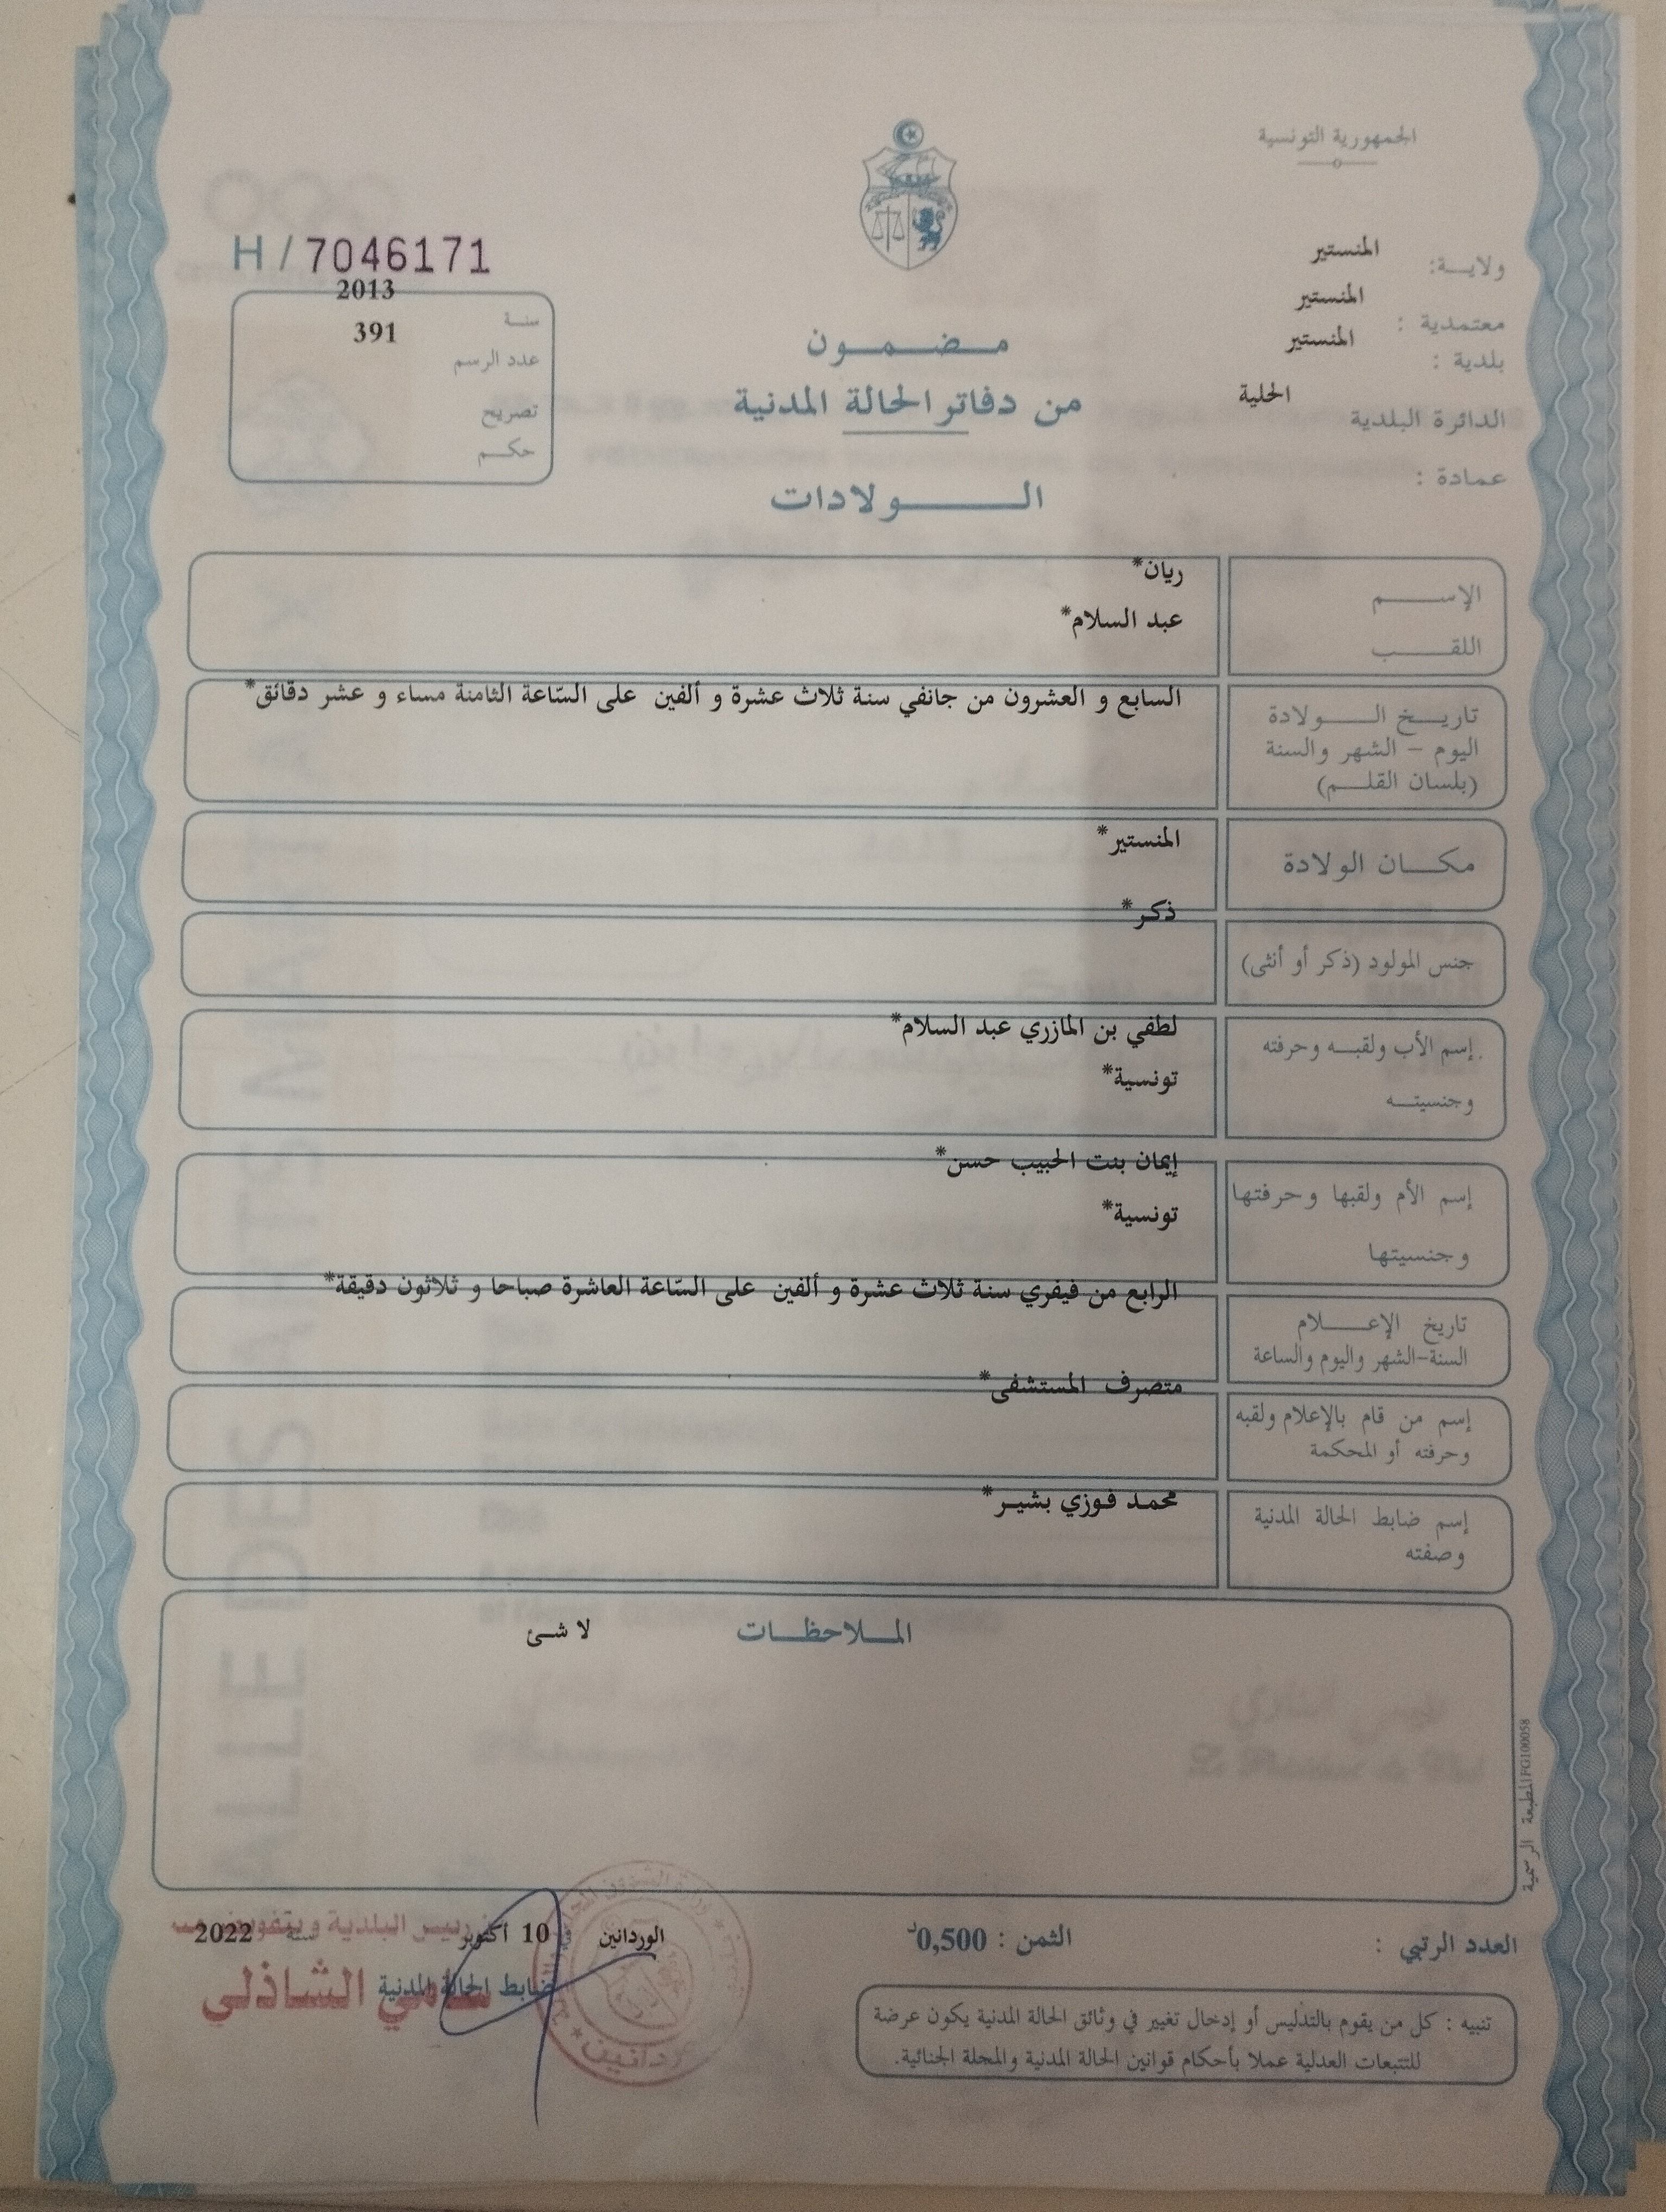 الجمهورية التونسية
ولايـــة: المنستير
معتمدية : المنستير
بلدية : المنستير
الدائرة البلدية المحلية
عمادة :
H / 7046171
سنـة 2013
عدد الرسم 391
تصريح
حكـم
مـضـمـون
من دفاتر الحالة المدنية
الـولادات
الإســـم ريان*
اللقــب عبد السلام*
تاريـخ الــولادة السابع و العشرون من جانفي سنة ثلاث عشرة و ألفين على السّاعة الثامنة مساء و عشر دقائق*
اليوم – الشهر والسنة
(بلسان القلـم)
مكــان الولادة المنستير*
جنس المولود (ذكر أو أنثى) ذكر*
إسم الأب ولقبـه وحرفته لطفي بن المازري عبد السلام*
وجنسيتـه تونسية*
إسم الأم ولقبها وحرفتها إيمان بنت الحبيب حسن*
وجنسيتها تونسية*
تاريخ الإعـــلام الرابع من فيفري سنة ثلاث عشرة و ألفين على السّاعة العاشرة صباحا و ثلاثون دقيقة*
السنة-الشهر واليوم والساعة
إسم من قام بالإعلام ولقبه متصرف المستشفى*
وحرفته أو المحكمة
إسم ضابط الحالة المدنية محمد فوزي بشير*
وصفته
المـلاحظـات لا شئ
المطبعة الرسمية FG100058
العدد الرتبي :
الثمن : 0,500د
الوردانين 10 أكتوبر سنة 2022
رئيس البلدية وبتفويض منه
ضابط الحالة المدنية
سامي الشاذلي
تنبيه : كل من يقوم بالتدليس أو إدخال تغيير في وثائق الحالة المدنية يكون عرضة
للتتبعات العدلية عملا بأحكام قوانين الحالة المدنية والمجلة الجنائية.